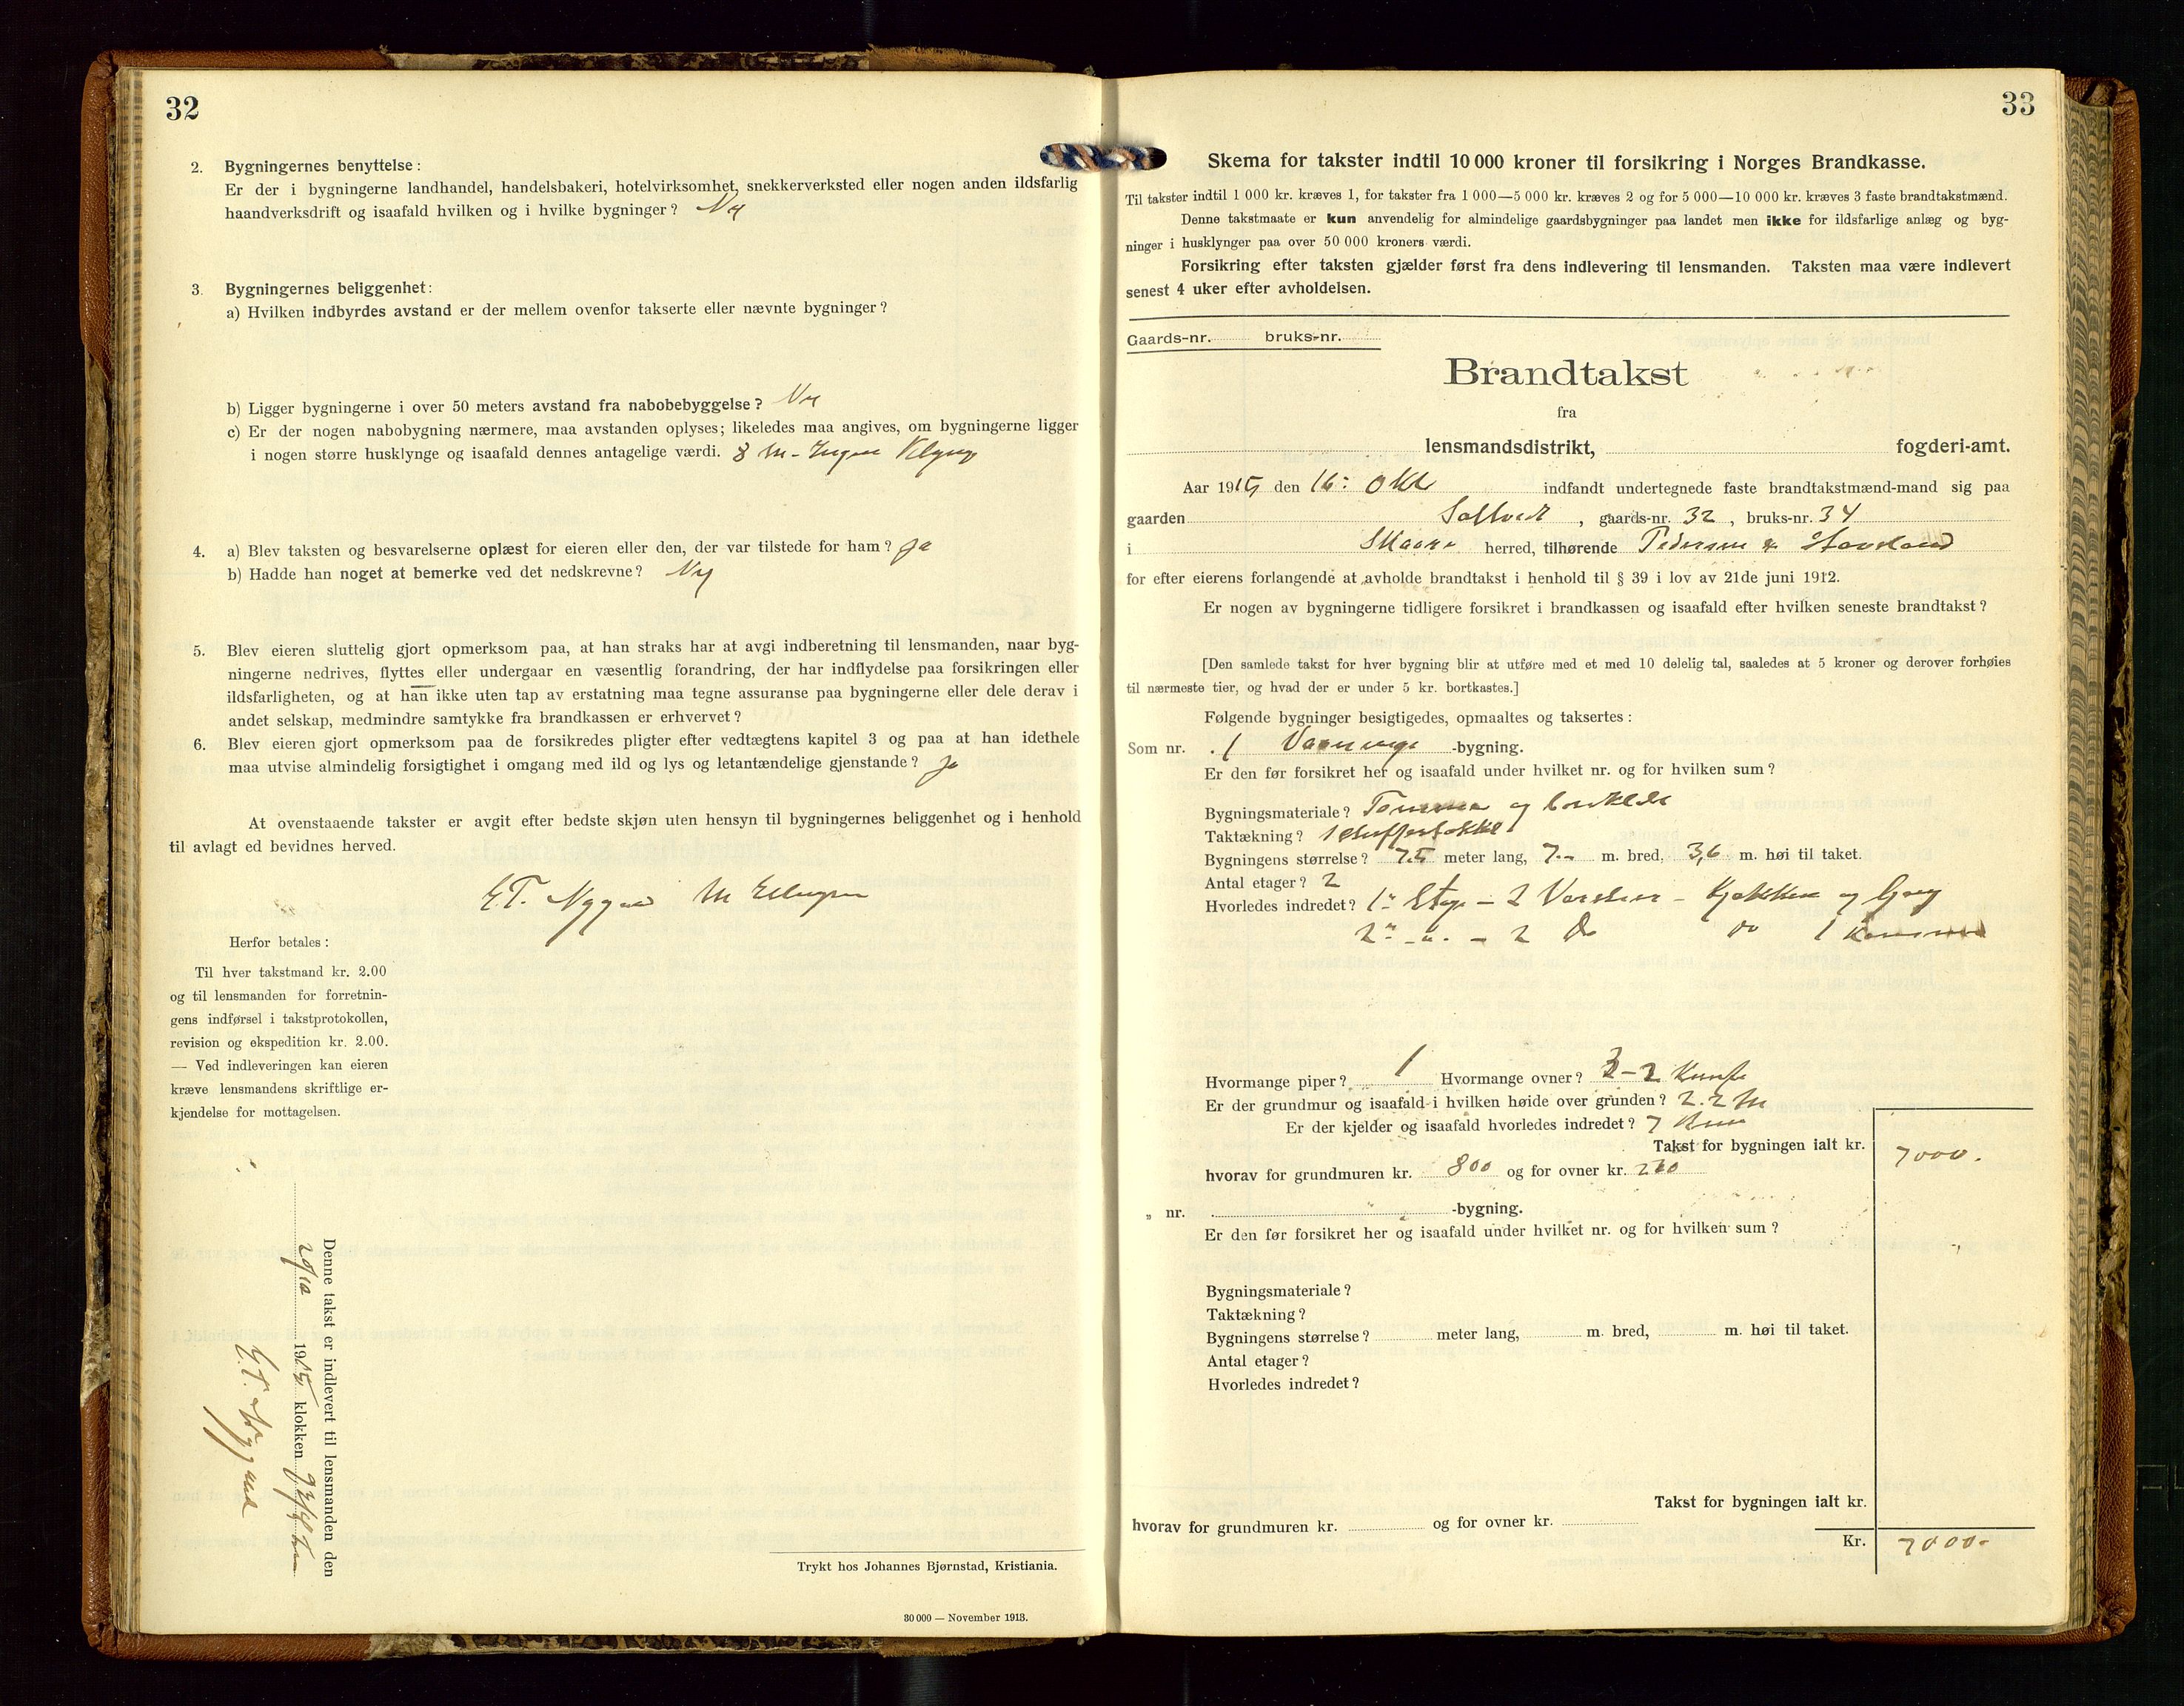 32
2. Bygningernes benyttelse:
Er der i bygningerne landhandel, handelsbakeri, hotelvirksomhet, snekkerverksted eller nogen anden ildsfarlig
haandverksdrift og isaafald hvilken og i hvilke bygninger? Nei
3. Bygningernes beliggenhet:
a) Hvilken indbyrdes avstand er der mellem ovenfor takserte eller nævnte bygninger?
b) Ligger bygningerne i over 50 meters avstand fra nabobebyggelse? Nei
c) Er der nogen nabobygning nærmere, maa avstanden oplyses; likeledes maa angives, om bygningerne ligger
i nogen større husklynge og isaafald dennes antagelige værdi. 8 m - Ingen
4. a) Blev taksten og besvarelserne oplæst for eieren eller den, der var tilstede for ham? Ja
b) Hadde han noget at bemerke ved det nedskrevne? Nei
5. Blev eieren sluttelig gjort opmerksom paa, at han straks har at avgi indberetning til lensmanden, naar byg-
ningerne nedrives, flyttes eller undergaar en væsentlig forandring, der har indflydelse paa forsikringen eller
ildsfarligheten, og at han ikke uten tap av erstatning maa tegne assuranse paa bygningerne eller dele derav i
andet selskap, medmindre samtykke fra brandkassen er erhvervet?
6. Blev eieren gjort opmerksom paa de forsikredes pligter efter vedtægtens kapitel 3 og paa at han idethele
maa utvise almindelig forsigtighet i omgang med ild og lys og letantændelige gjenstande? Ja
At ovenstaaende takster er avgit efter bedste skjøn uten hensyn til bygningernes beliggenhet og i henhold
til avlagt ed bevidnes herved.
E.T. Nygaard M
Herfor betales:
Til hver takstmand kr. 2.00
og til lensmanden for forretnin-
gens indførsel i takstprotokollen,
revision og ekspedition kr. 2.00.
— Ved indleveringen kan eieren
kræve lensmandens skriftlige er-
kjendelse for mottagelsen.
Denne takst er indlevert til lensmanden den
20/10 1915 klokken
E.T. Nygaard
Trykt hos Johannes Bjørnstad, Kristiania.
30 000 — November 1913.
33
Skema for takster indtil 10 000 kroner til forsikring i Norges Brandkasse.
Til takster indtil 1 000 kr. kræves 1, for takster fra 1 000—5 000 kr. kræves 2 og for 5 000—10 000 kr. kræves 3 faste brandtakstmænd.
Denne takstmaate er kun anvendelig for almindelige gaardsbygninger paa landet men ikke for ildsfarlige anlæg og byg-
ninger i husklynger paa over 50 000 kroners værdi.
Forsikring efter taksten gjælder først fra dens indlevering til lensmanden. Taksten maa være indlevert
senest 4 uker efter avholdelsen.
Gaards-nr. bruks-nr.
Brandtakst
fra
lensmandsdistrikt, fogderi-amt.
Aar 1915 den 16: Okt indfandt undertegnede faste brandtakstmænd-mand sig paa
gaarden Saltveit, gaards-nr. 32, bruks-nr. 34
i Skaare herred, tilhørende Pedersen & Stavland
for efter eierens forlangende at avholde brandtakst i henhold til § 39 i lov av 21de juni 1912.
Er nogen av bygningerne tidligere forsikret i brandkassen og isaafald efter hvilken seneste brandtakst?
[Den samlede takst for hver bygning blir at utføre med et med 10 delelig tal, saaledes at 5 kroner og derover forhøies
til nærmeste tier, og hvad der er under 5 kr. bortkastes.]
Følgende bygninger besigtigedes, opmaaltes og taksertes:
Som nr. 1 Vaanings -bygning.
Er den før forsikret her og isaafald under hvilket nr. og for hvilken sum?
Bygningsmateriale? Tømmer og bordklæd
Taktækning?
Bygningens størrelse? 7.5 meter lang, 7.- m. bred, 3,6 m. høi til taket.
Antal etager? 2
Hvorledes indredet? 1ste Etage - 2 Værelser - Kjøkken og Gang
2 - " - 2 Do do 1 Kammer
Hvormange piper? 1 Hvormange ovner? 3-2
Er der grundmur og isaafald i hvilken høide over grunden? 2.2 m
Er der kjelder og isaafald hvorledes indredet?
Takst for bygningen ialt kr. 7000.
hvorav for grundmuren kr. 800 og for ovner kr.
„ nr. -bygning.
Er den før forsikret her og isaafald under hvilket nr. og for hvilken sum?
Bygningsmateriale?
Taktækning?
Bygningens størrelse? meter lang, m. bred, m. høi til taket.
Antal etager?
Hvorledes indredet?
Takst for bygningen ialt kr.
hvorav for grundmuren kr. og for ovner kr.
Kr. 7000-